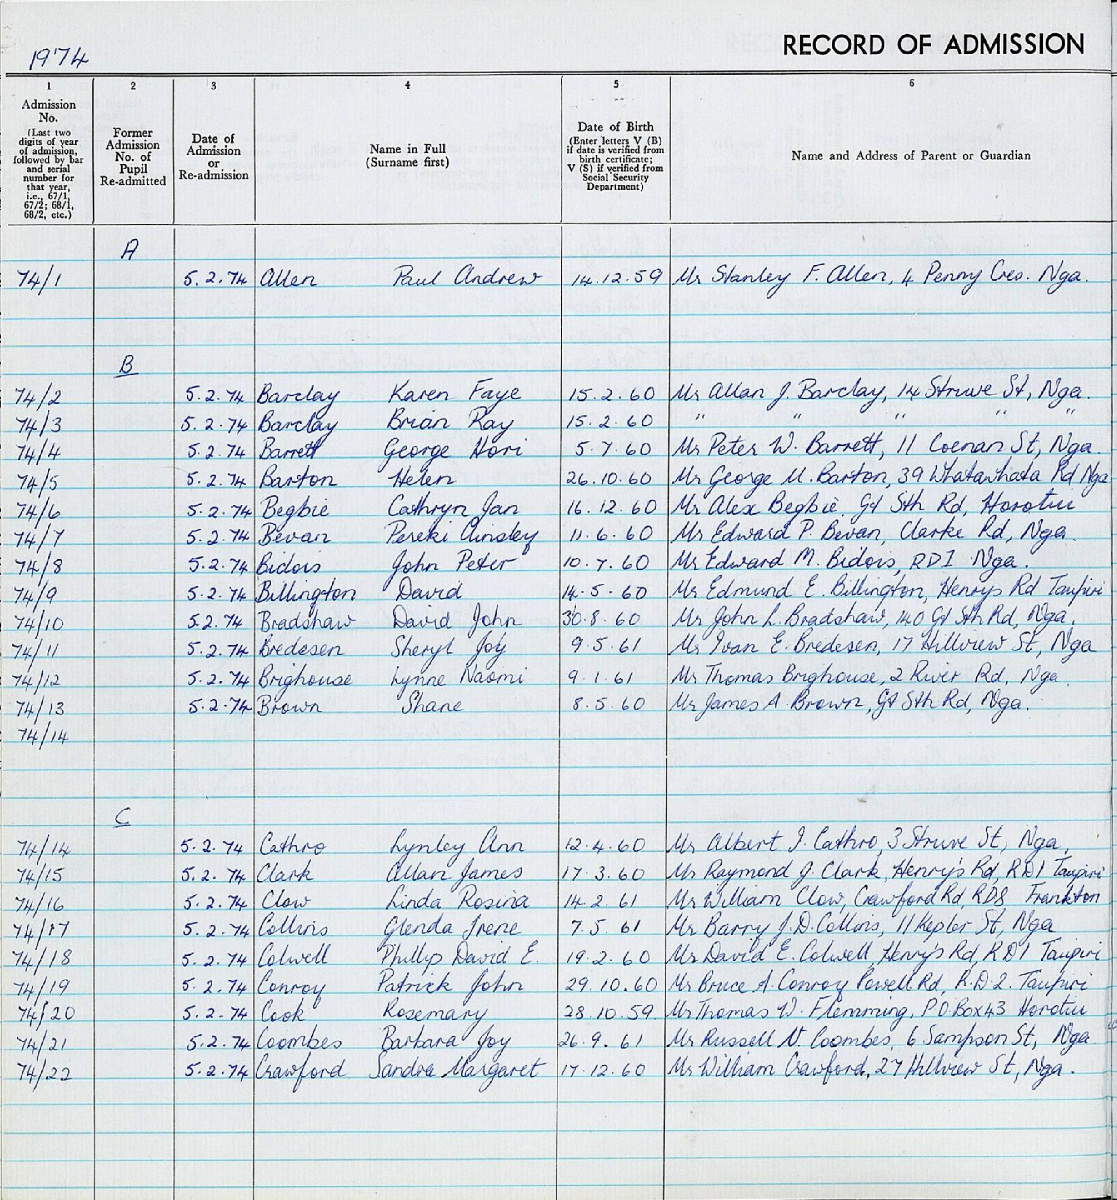 1974
RECORD OF ADMISSION
1 2 3 4 5 6
Admission
No.
(Last two
digits of year
of admission,
followed by bar
and serial
number for
that year,
i.e., 67/1,
67/2; 68/1,
68/2, etc.)
Former
Admission
No. of
Pupil
Re-admitted
Date of
Admission
or
Re-admission
Name in Full
(Surname first)
Date of Birth
(Enter letters V (B)
if date is verified from
birth certificate;
V (S) if verified from
Social Security
Department)
Name and Address of Parent or Guardian
A
74/1 5.2.74 Allen Paul Andrew 14.12.59 Mr Stanley F. Allen, 4 Penny Cres. Nga.
B
74/2 5.2.74 Barclay Karen Faye 15.2.60 Mr Allan J. Barclay, 14 Struwe St, Nga.
74/3 5.2.74 Barclay Brian Ray 15.2.60 " " " " "
74/4 5.2.74 Barrett George Hori 5.7.60 Mr Peter W. Barrett, 11 Coenan St, Nga.
74/5 5.2.74 Barton Helen 26.10.60 Mr George M. Barton, 39 Whatawhata Rd Nga
74/6 5.2.74 Begbie Cathryn Jan 16.12.60 Mr Alex Begbie, Gt Sth Rd, Horotiu
74/7 5.2.74 Bevan Pereki Ainsley 11.6.60 Mr Edward P. Bevan, Clarke Rd, Nga.
74/8 5.2.74 Bidois John Peter 10.7.60 Mr Edward M. Bidois, RD1 Nga.
74/9 5.2.74 Billington David 14.5.60 Mr Edmund E. Billington, Henrys Rd Taupiri
74/10 5.2.74 Bradshaw David John 30.8.60 Mr John L. Bradshaw, 140 Gt Sth Rd, Nga.
74/11 5.2.74 Bredesen Sheryl Joy 9.5.61 Mr Ivan E. Bredesen, 17 Hillview St, Nga
74/12 5.2.74 Brighouse Lynne Naomi 9.1.61 Mr Thomas Brighouse, 2 River Rd, Nga.
74/13 5.2.74 Brown Shane 8.5.60 Mr James A. Brown, Gt Sth Rd, Nga.
74/14
C
74/14 5.2.74 Cathro Lynley Ann 12.4.60 Mr Albert J. Cathro, 3 Struve St, Nga,
74/15 5.2.74 Clark Allan James 17.3.60 Mr Raymond J. Clark, Henry's Rd, RD1 Taupiri
74/16 5.2.74 Clow Linda Rosina 14.2.61 Mr William Clow, Crawford Rd, RD8 Frankton
74/17 5.2.74 Collins Glenda Irene 7.5.61 Mr Barry J.D. Collins, 11 Kepler St, Nga
74/18 5.2.74 Colwell Phillip David E. 19.2.60 Mr David E. Colwell, Henry's Rd, RD1 Taupiri
74/19 5.2.74 Conroy Patrick John 29.10.60 Mr Bruce A. Conroy Powell Rd, R.D.2. Taupiri
74/20 5.2.74 Cook Rosemary 28.10.59. Mr Thomas W. Flemming, P.O Box 43 Horotiu
74/21 5.2.74 Coombes Barbara Joy 26.9.61 Mr Russell N. Coombes, 6 Sampson St, Nga
74/22 5.2.74 Crawford Sandra Margaret 17.12.60 Mr William Crawford, 27 Hillview St, Nga.